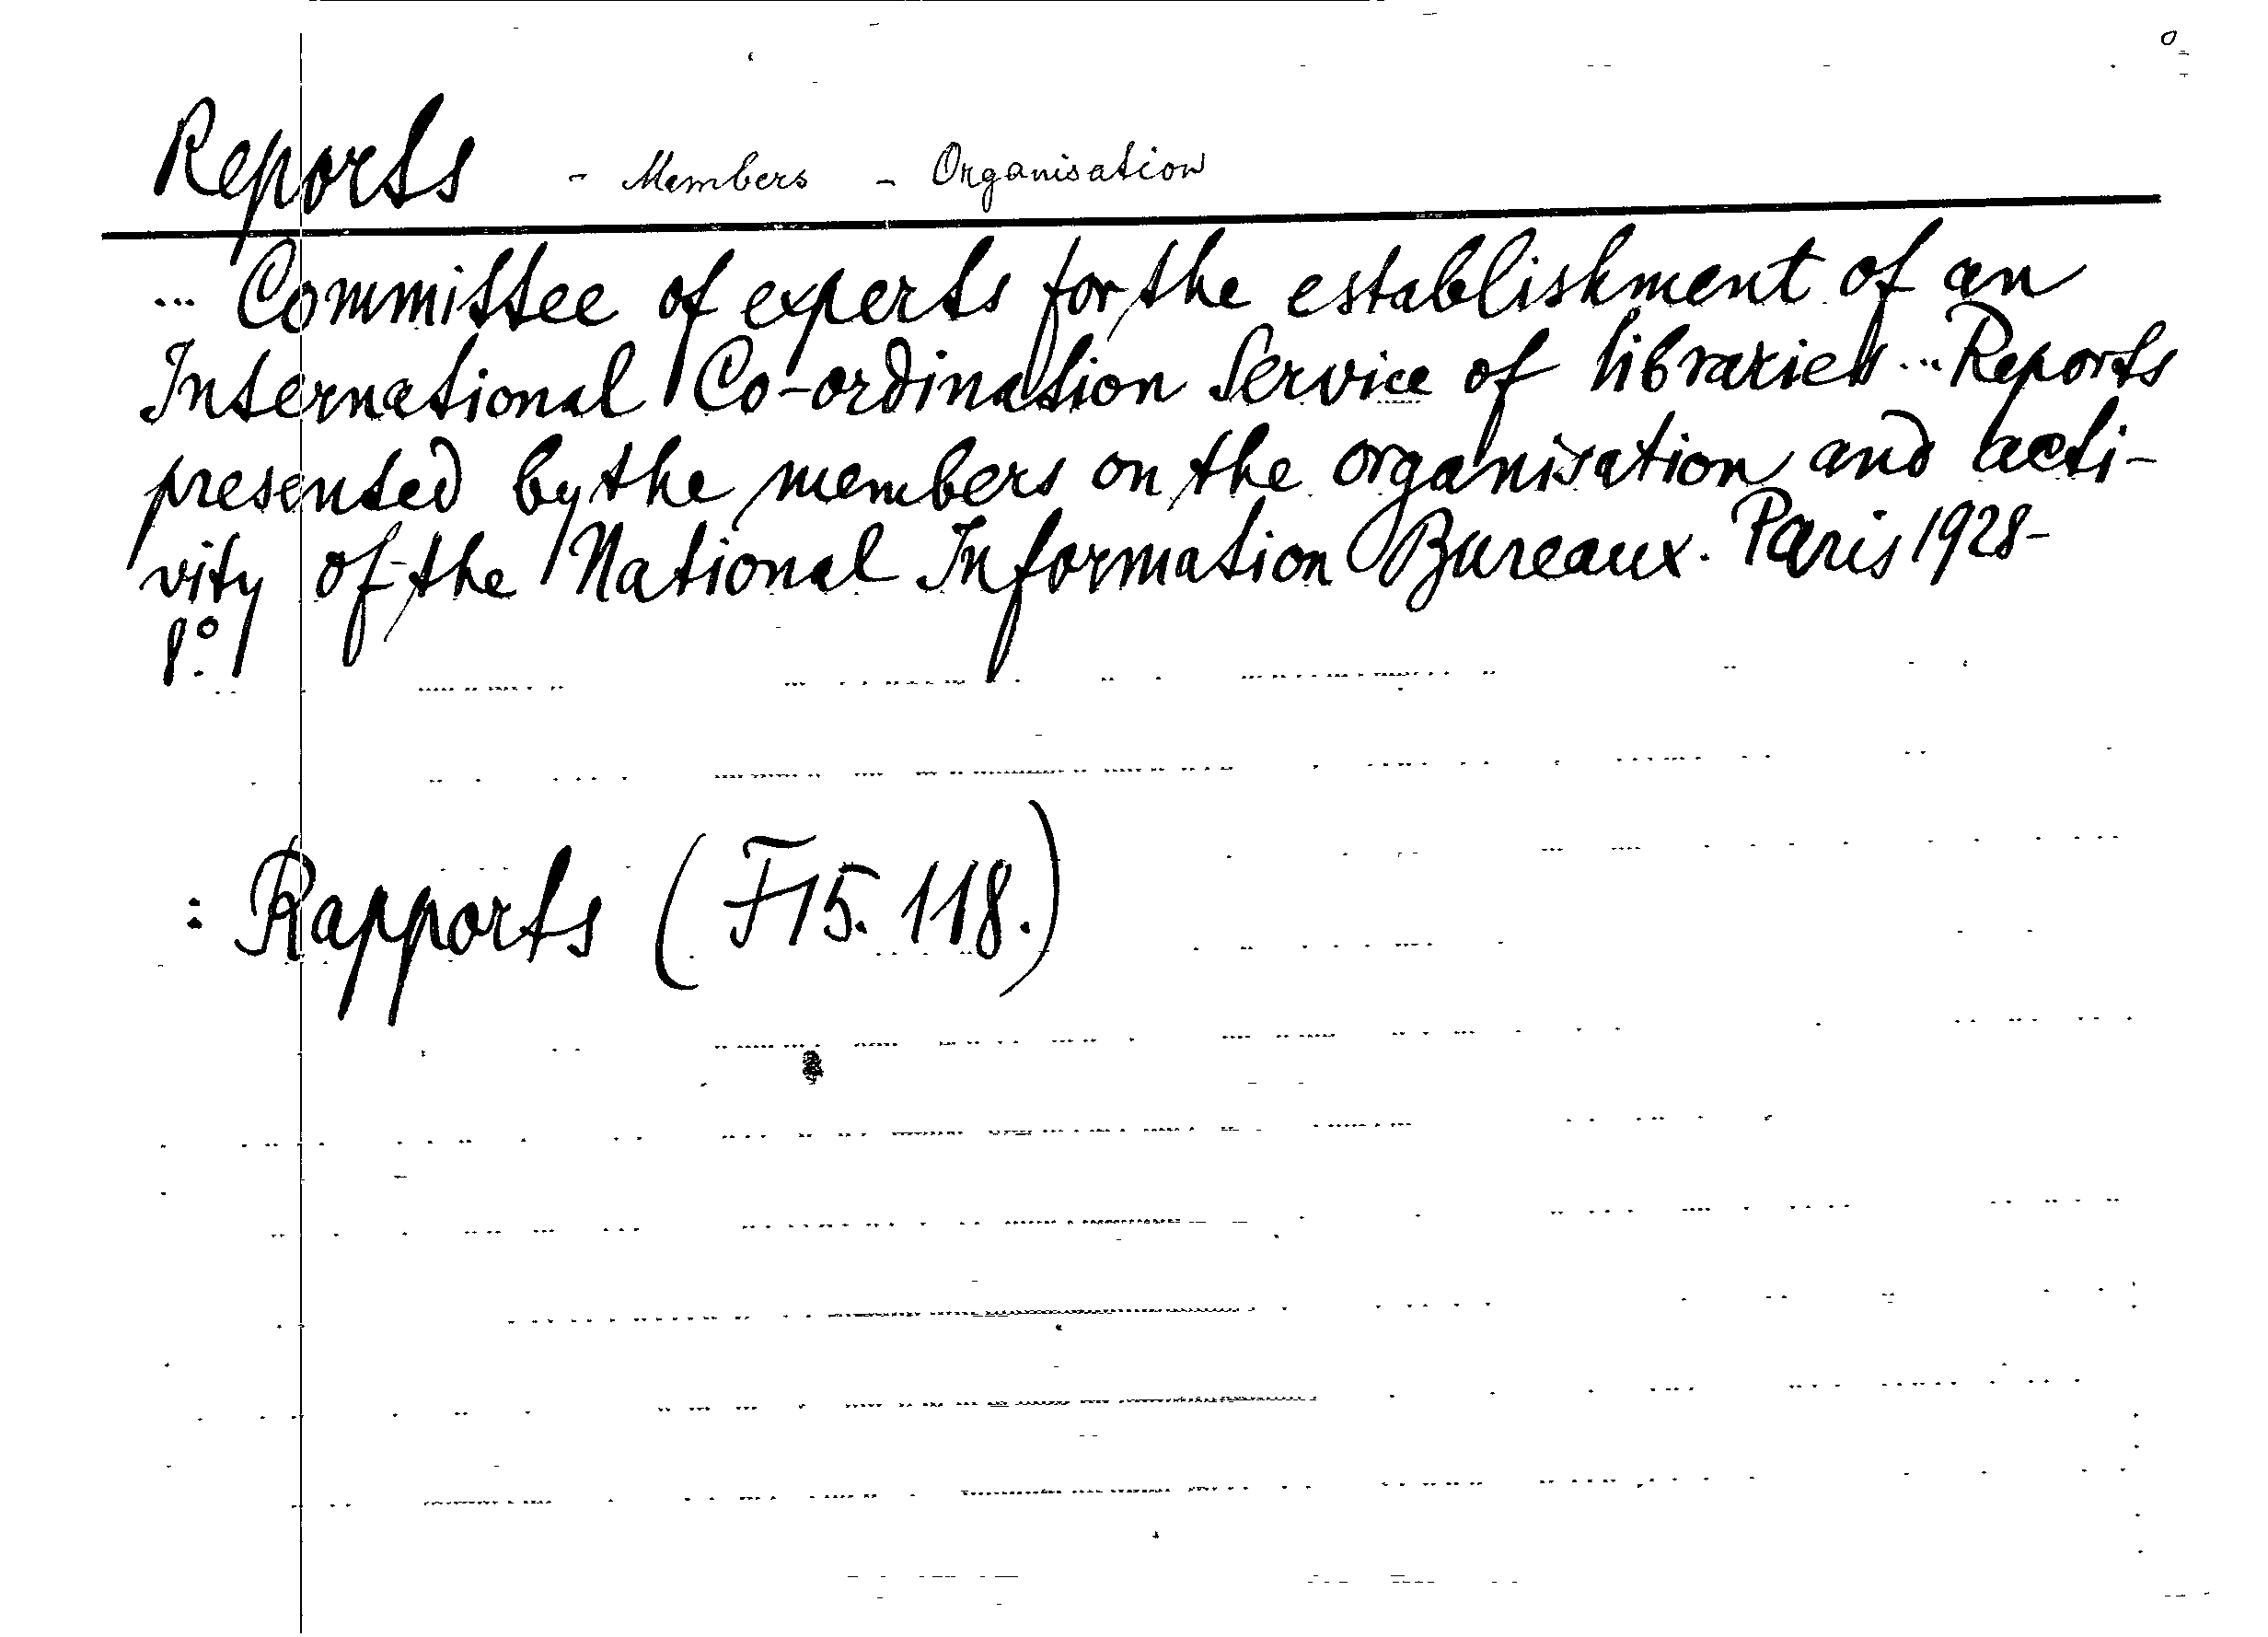 Reports - Members - Organisation
... Committee of experts for the establishment of an
International Co-ordination Service of libraries ... Reports
presented by the members on the organisation and acti-
vity of the National Information Bureaux. Paris 1928-
8°.
: Rapports (F15. 118.)